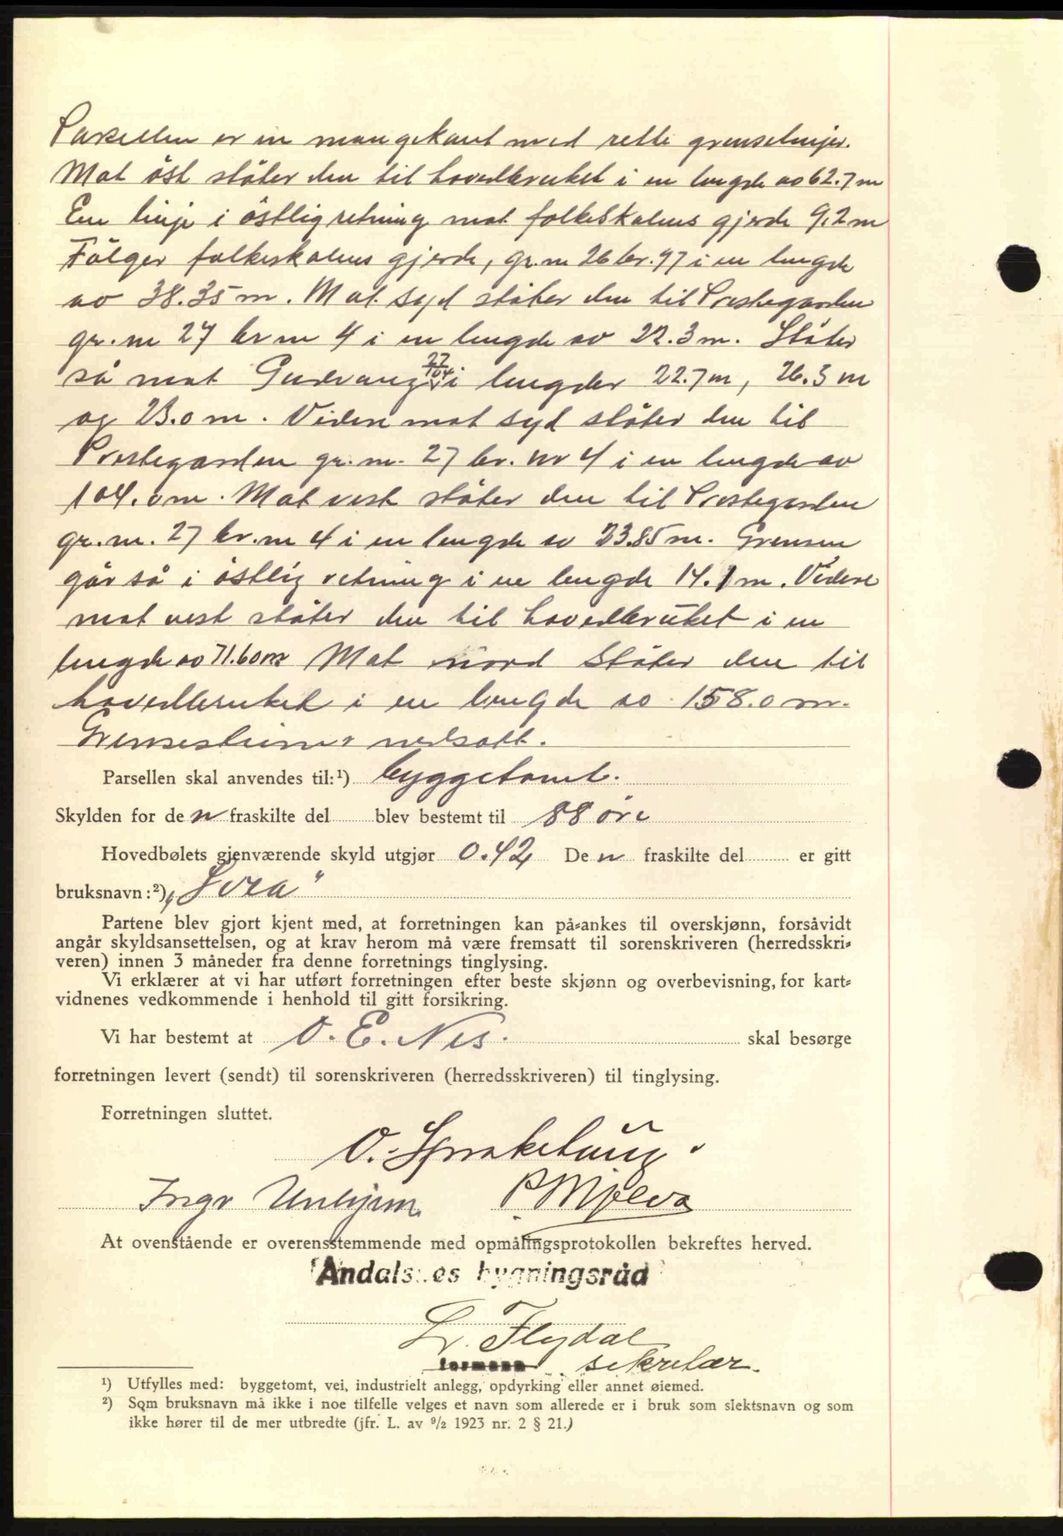 Parsellen er en mangekant med rette grenselinjer.
Mot öst stöter den til hovedbruket i en lengde av 62.7 m
En linje i östlig retning mot folkeskolens gjerde 9.2 m
Fölger folkeskolens gjerde, gr. nr 26 br. 97 i en lengde
av 38.35 m. Mot syd stöter den til Prestegarden
gr. nr 27 br nr 4 i en lengde av 22.3 m. Stöter
så mot 27/104 i lengder 22.7 m, 26.3 m
og 23.0 m. Videre mot syd stöter den til
Prestegarden gr. nr. 27 br. nr 4 i en lengde av
104.0 m. Mot vest stöter den til Prestegarden
gr. nr. 27 br. nr 4 i en lengde av 23.85 m. Grensen
går så i östlig retning i en lengde 14.1 m. Videre
mot vest stöter den til hovedbruket i en
lengde av 71.60 m Mot nord stöter den til
hovedbruket i en lengde av 158.0 m.
Grensesteiner nedsatt.
Parsellen skal anvendes til:¹) byggetomt.
Skylden for den fraskilte del blev bestemt til 88 öre
Hovedbølets gjenværende skyld utgjør 0.42 Den fraskilte del er gitt
bruksnavn:²) „Svea"
Partene blev gjort kjent med, at forretningen kan på=ankes til overskjønn, forsåvidt
angår skyldsansettelsen, og at krav herom må være fremsatt til sorenskriveren (herredsskri=
veren) innen 3 måneder fra denne forretnings tinglysing.
Vi erklærer at vi har utført forretningen efter beste skjønn og overbevisning, for kart=
vidnenes vedkommende i henhold til gitt forsikring.
Vi har bestemt at O. E. Nes. skal besørge
forretningen levert (sendt) til sorenskriveren (herredsskriveren) til tinglysing.
Forretningen sluttet.
O.
Ingv Unhjem. P. Mjelva
At ovenstående er overensstemmende med opmålingsprotokollen bekreftes herved.
Åndalsnes bygningsråd
Flydal
formann sekretær.
¹) Utfylles med: byggetomt, vei, industrielt anlegg, opdyrking eller annet øiemed.
²) Som bruksnavn må ikke i noe tilfelle velges et navn som allerede er i bruk som slektsnavn og som
ikke hører til de mer utbredte (jfr. L. av ⁹/₂ 1923 nr. 2 § 21.)